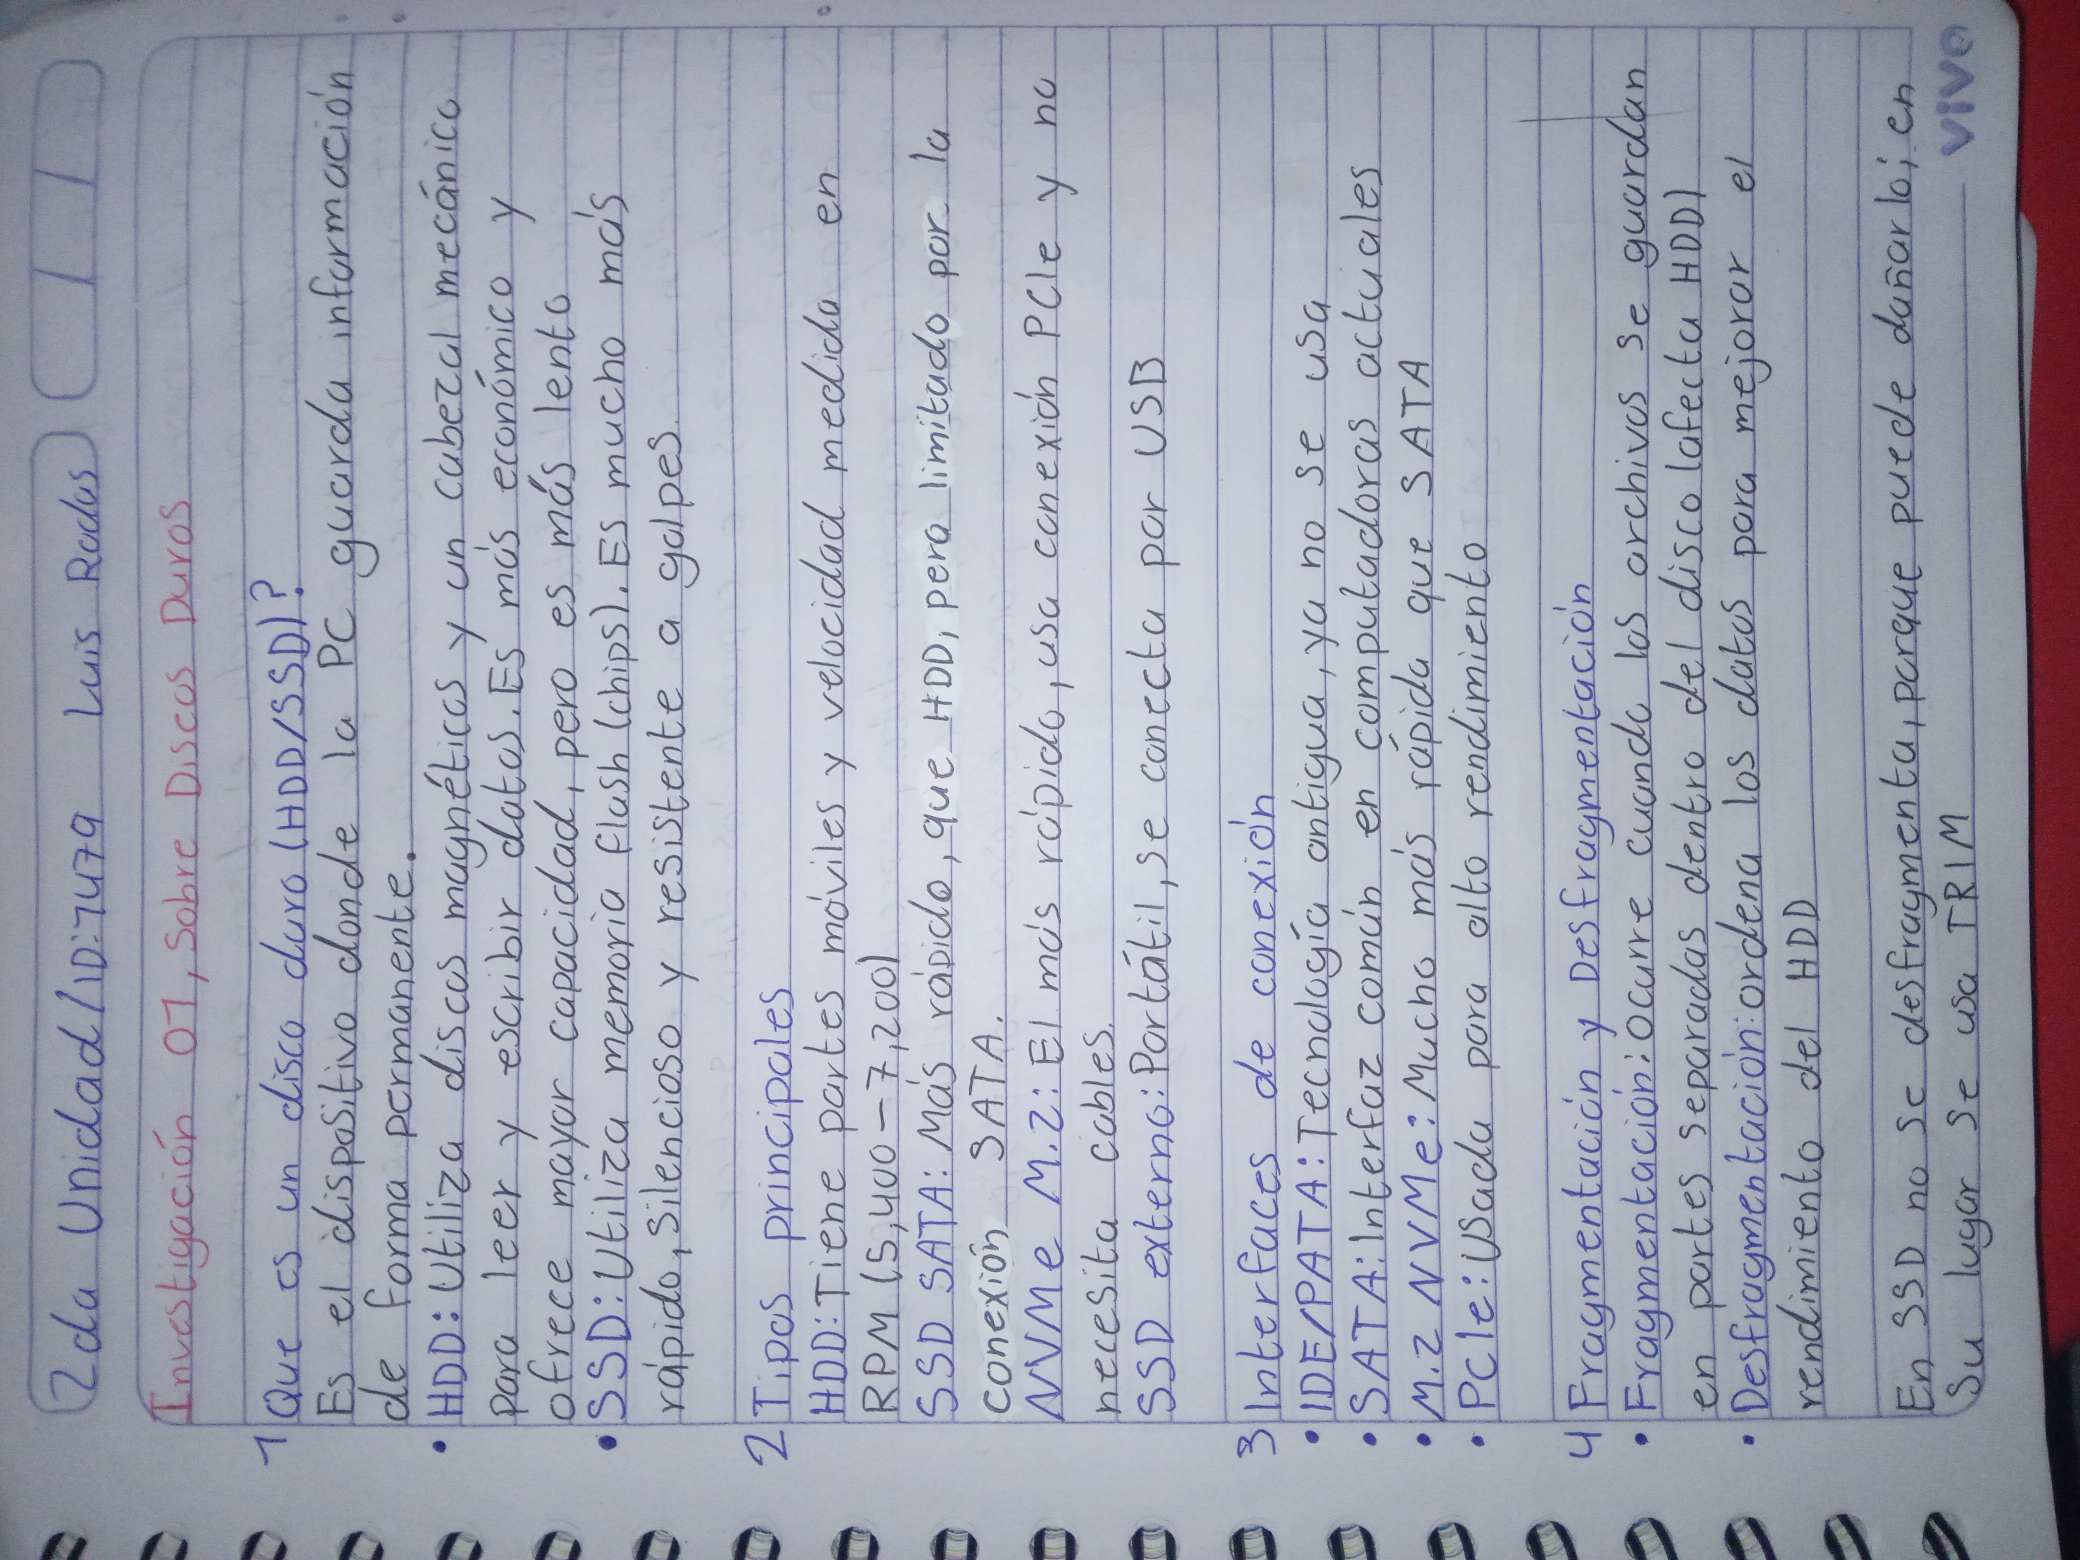 2da Unidad/ID:7479 Luis Rodas
Investigación 01, Sobre Discos Duros
1 Que es un disco duro (HDD/SSD)?
Es el dispositivo donde la PC guarda información
de forma permanente.
• HDD: Utiliza discos magnéticos y un cabezal mecánico
para leer y escribir datos. Es más económico y
ofrece mayor capacidad, pero es más lento
• SSD: Utiliza memoria flash (chips). Es mucho más
rápido, silencioso y resistente a golpes.
2 Tipos principales
HDD: Tiene partes móviles y velocidad medida en
RPM (5,400-7,200)
SSD SATA: Más rápido, que HDD, pero limitado por la
conexión SATA.
NVMe M.2: El más rápido, usa conexión PCIe y no
necesita cables.
SSD externo: Portátil, se conecta por USB
3 Interfaces de conexión
• IDE/PATA: Tecnología antigua, ya no se usa
• SATA: Interfaz común en computadoras actuales
• M.2 NVMe: Mucho más rápida que SATA
• PCIe: Usada para alto rendimiento
4 Fragmentación y Desfragmentación
• Fragmentación: Ocurre cuando los archivos se guardan
en partes separadas dentro del disco (afecta HDD)
• Desfragmentación: ordena los datos para mejorar el
rendimiento del HDD
En SSD no se desfragmenta, porque puede dañarlo; en
Su lugar se usa TRIM
vivo